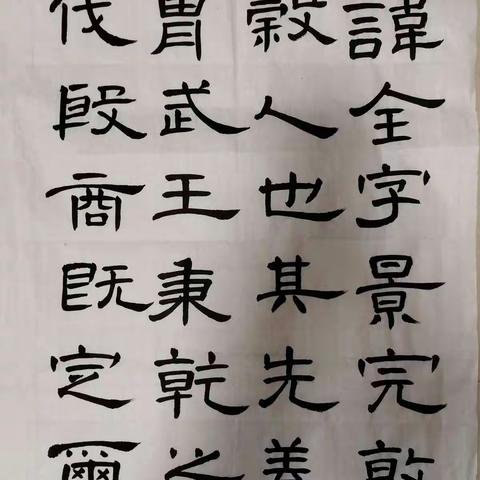 諱全字景完敦
穀人也其先蓋
胄武王秉乾之
伐殷商既定爾